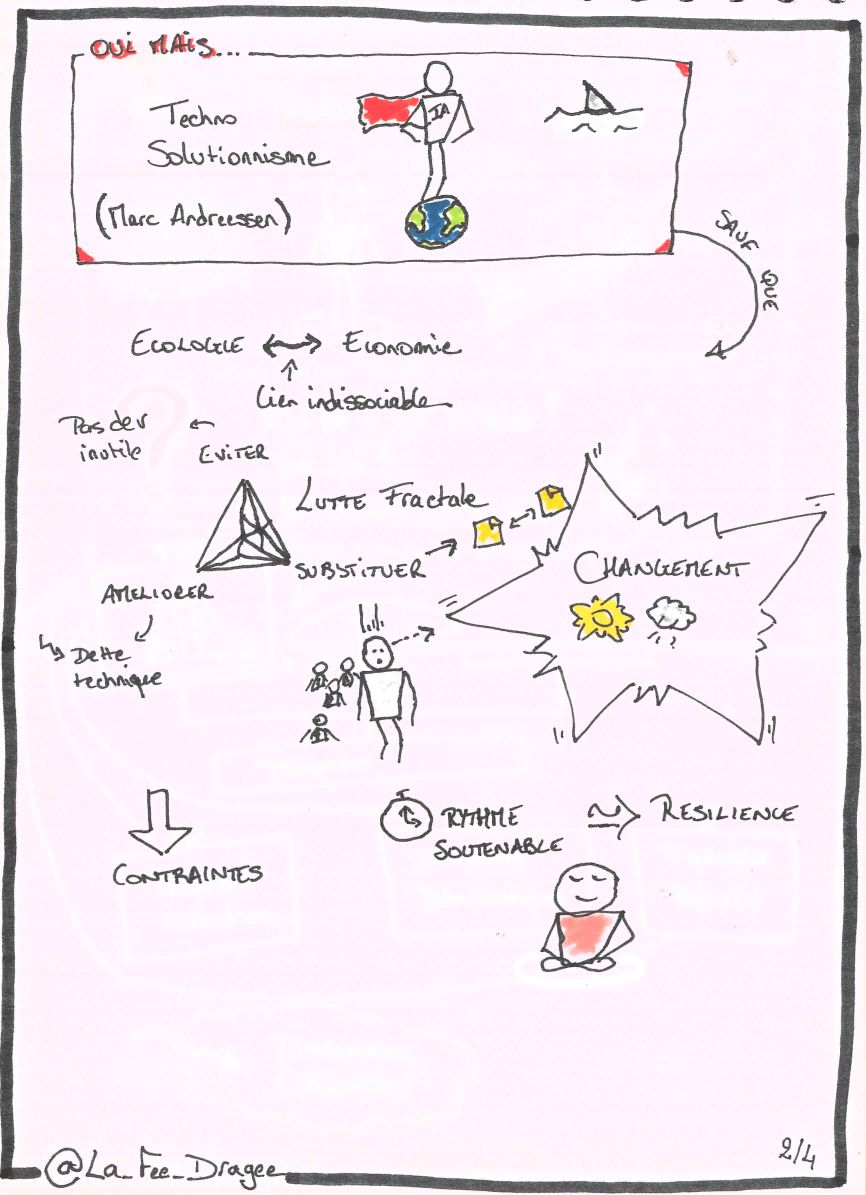 OUI MAIS...
Techno
Solutionnisme
(Marc Andreessen)
IA
SAUF QUE
ECOLOGIE ↔ ECONOMIE
↑
lien indissociable
Pas dev ←
inutile
EVITER
LUTTE Fractale
SUBSTITUER →
AMELIORER
↳ Dette
technique
CHANGEMENT
CONTRAINTES
RYTHME
SOUTENABLE
RESILIENCE
@La_Fee_Dragee
2/4